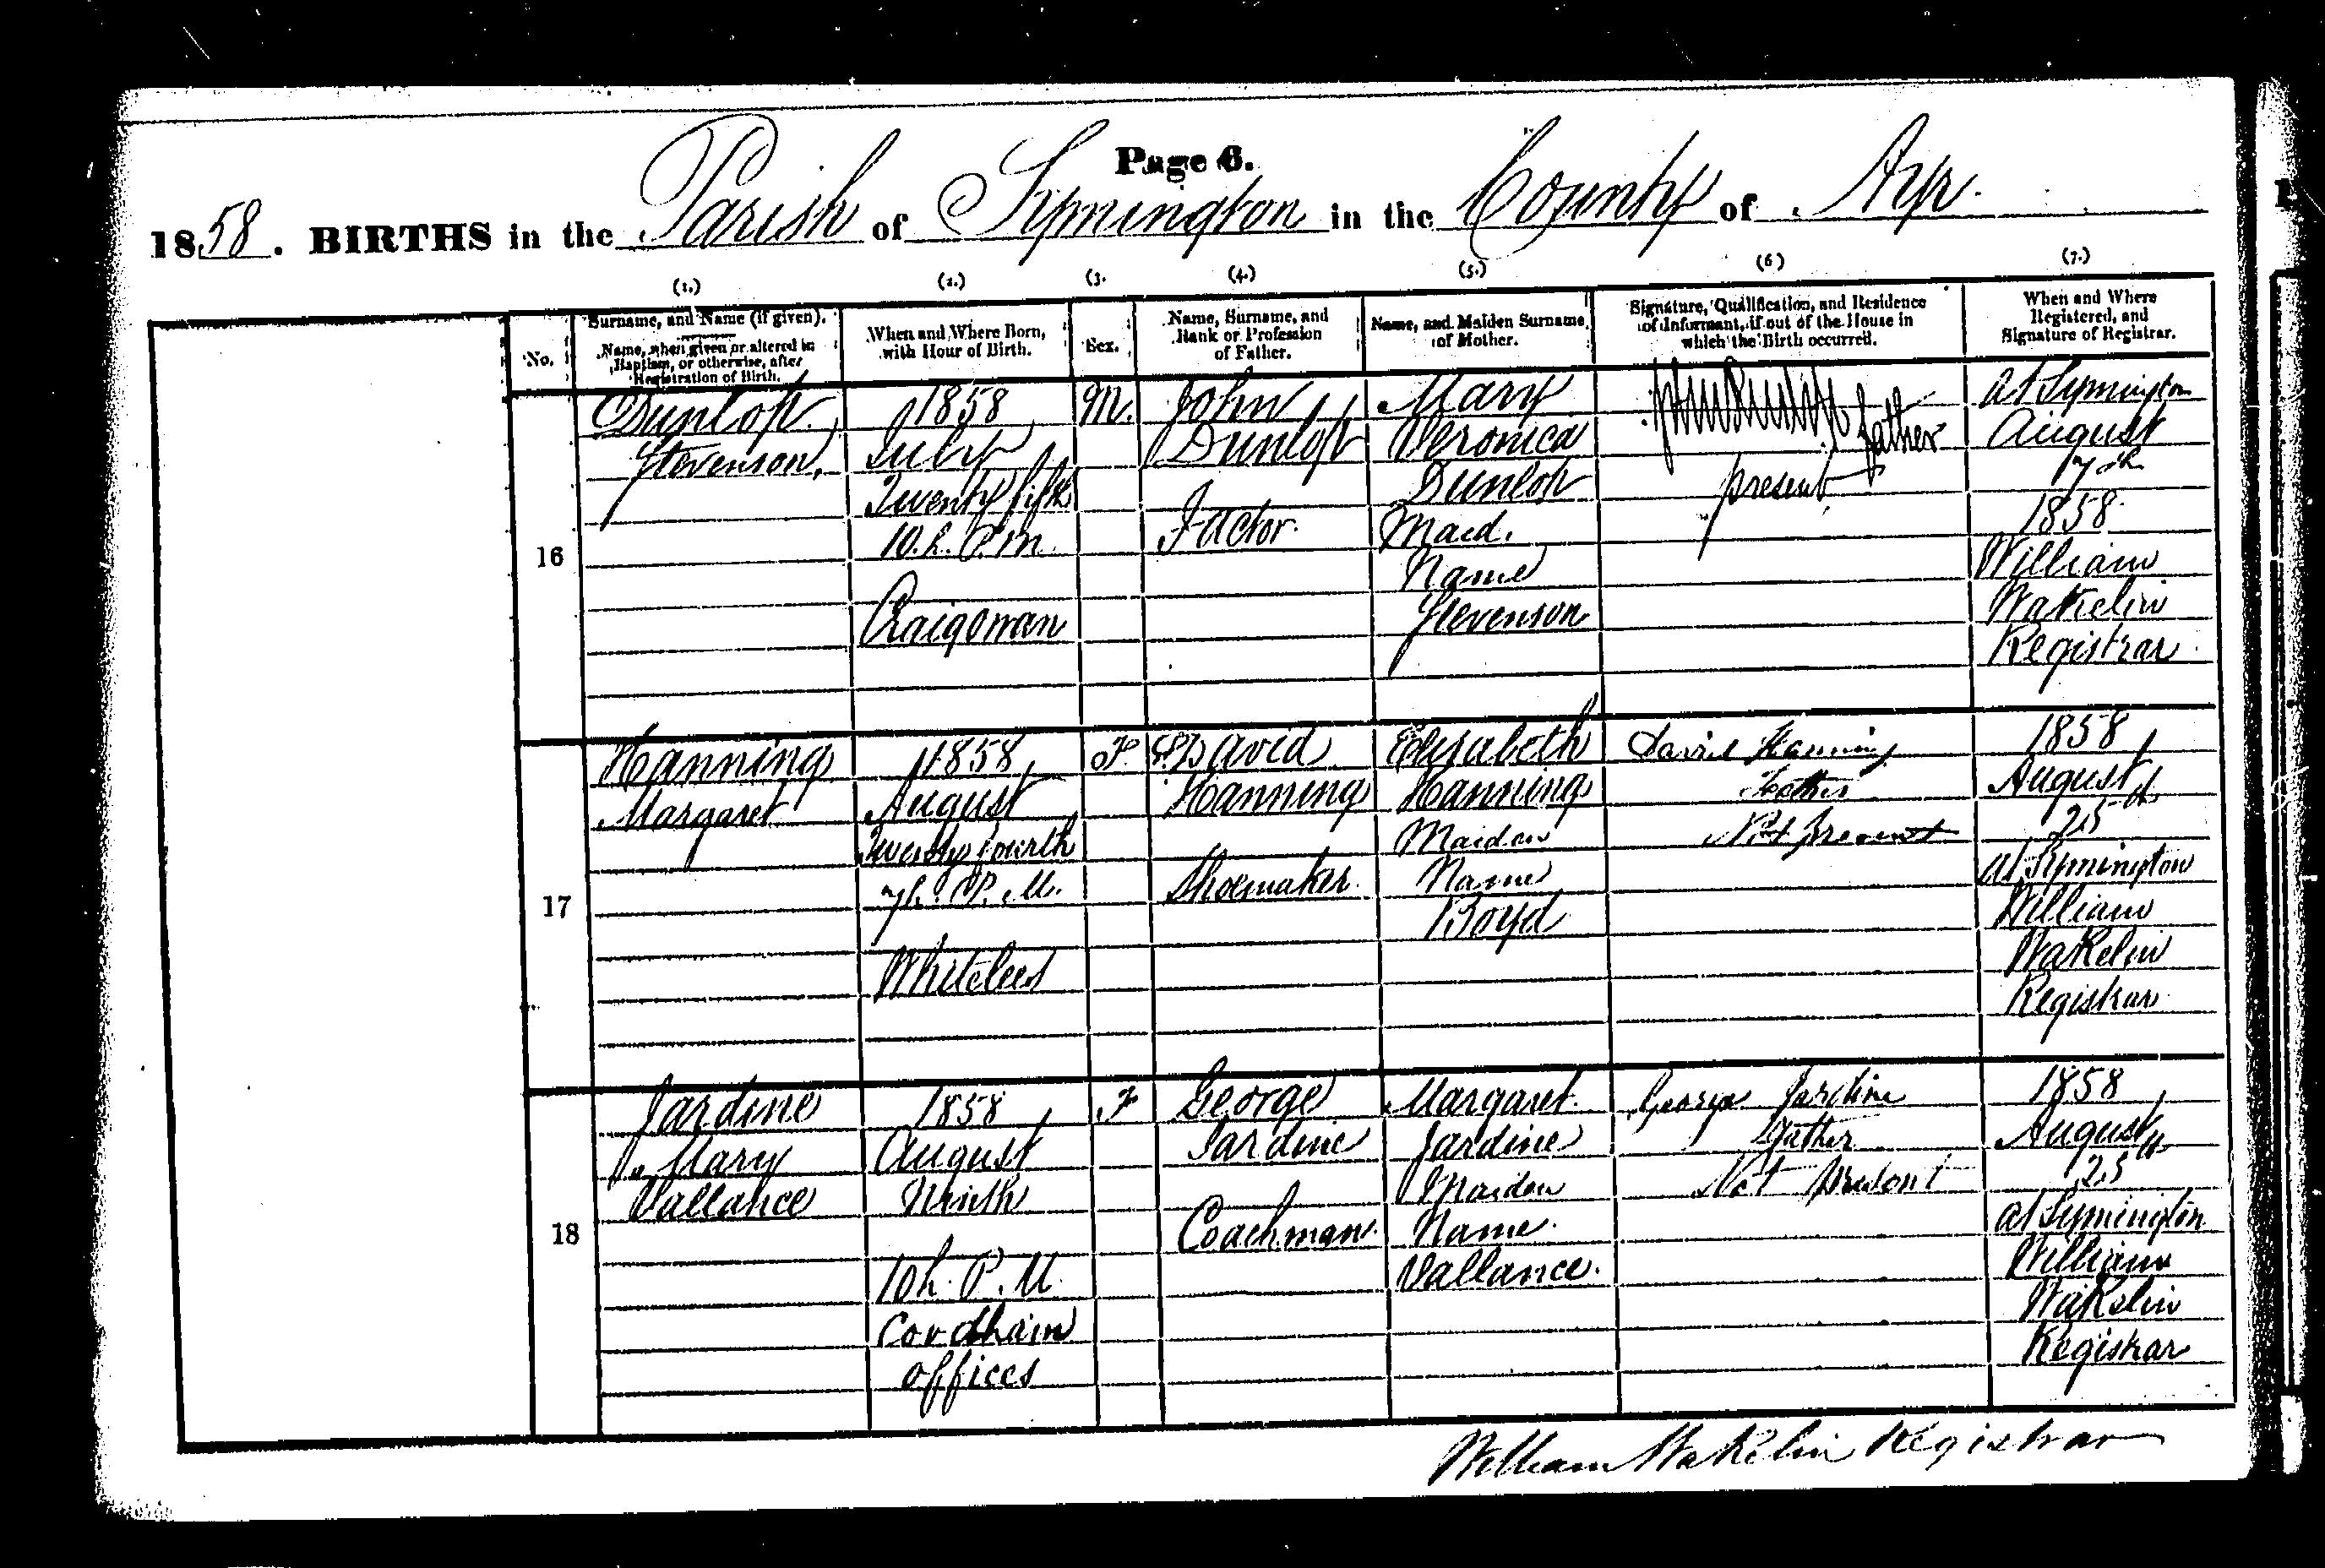 Page 6.
1858. BIRTHS in the Parish of Symington in the County of Ayr.
(1.) (2.) (3. (4.) (5.) (6) (7.)
No.
Surname, and Name (if given).
Name, when given or altered in
Baptism, or otherwise, after
Registration of Birth.
When and Where Born,
with Hour of Birth.
Sex.
Name, Surname, and
Rank or Profession
of Father.
Name, and Maiden Surname
of Mother.
Signature, Qualification, and Residence
of Informant, if out of the House in
which the Birth occurred.
When and Where
Registered, and
Signature of Registrar.
16
Dunlop.
Stevenson.
1858
July
Twenty fifth
10. h. P.M.
Craigowan
M.
John
Dunlop
Factor.
Mary
Veronica
Dunlop
Maid.
Name
Stevenson
John Dunlop father
present
at Symington
August
7th
1858
William
Wakelin
Registrar
17
Hanning
Margaret
1858
August
Twenty fourth
7h. P. M.
Whitelees
F.
David
Hanning
Shoemaker
Elizabeth
Hanning
Maiden
Name
Boyd
David Hanning
Father
Not present
1858
August
25th
at Symington
William
Wakelin
Registrar
18
Jardine
Mary
Vallance
1858
August
Ninth
10h. P. M.
Coodham
offices
F
George
Jardine
Coachman.
Margaret.
Jardine
Maiden
Name.
Vallance.
George Jardine
Father
Not present
1858
August
25th
at Symington
William
Wakelin
Registrar
William Wakelin Registrar